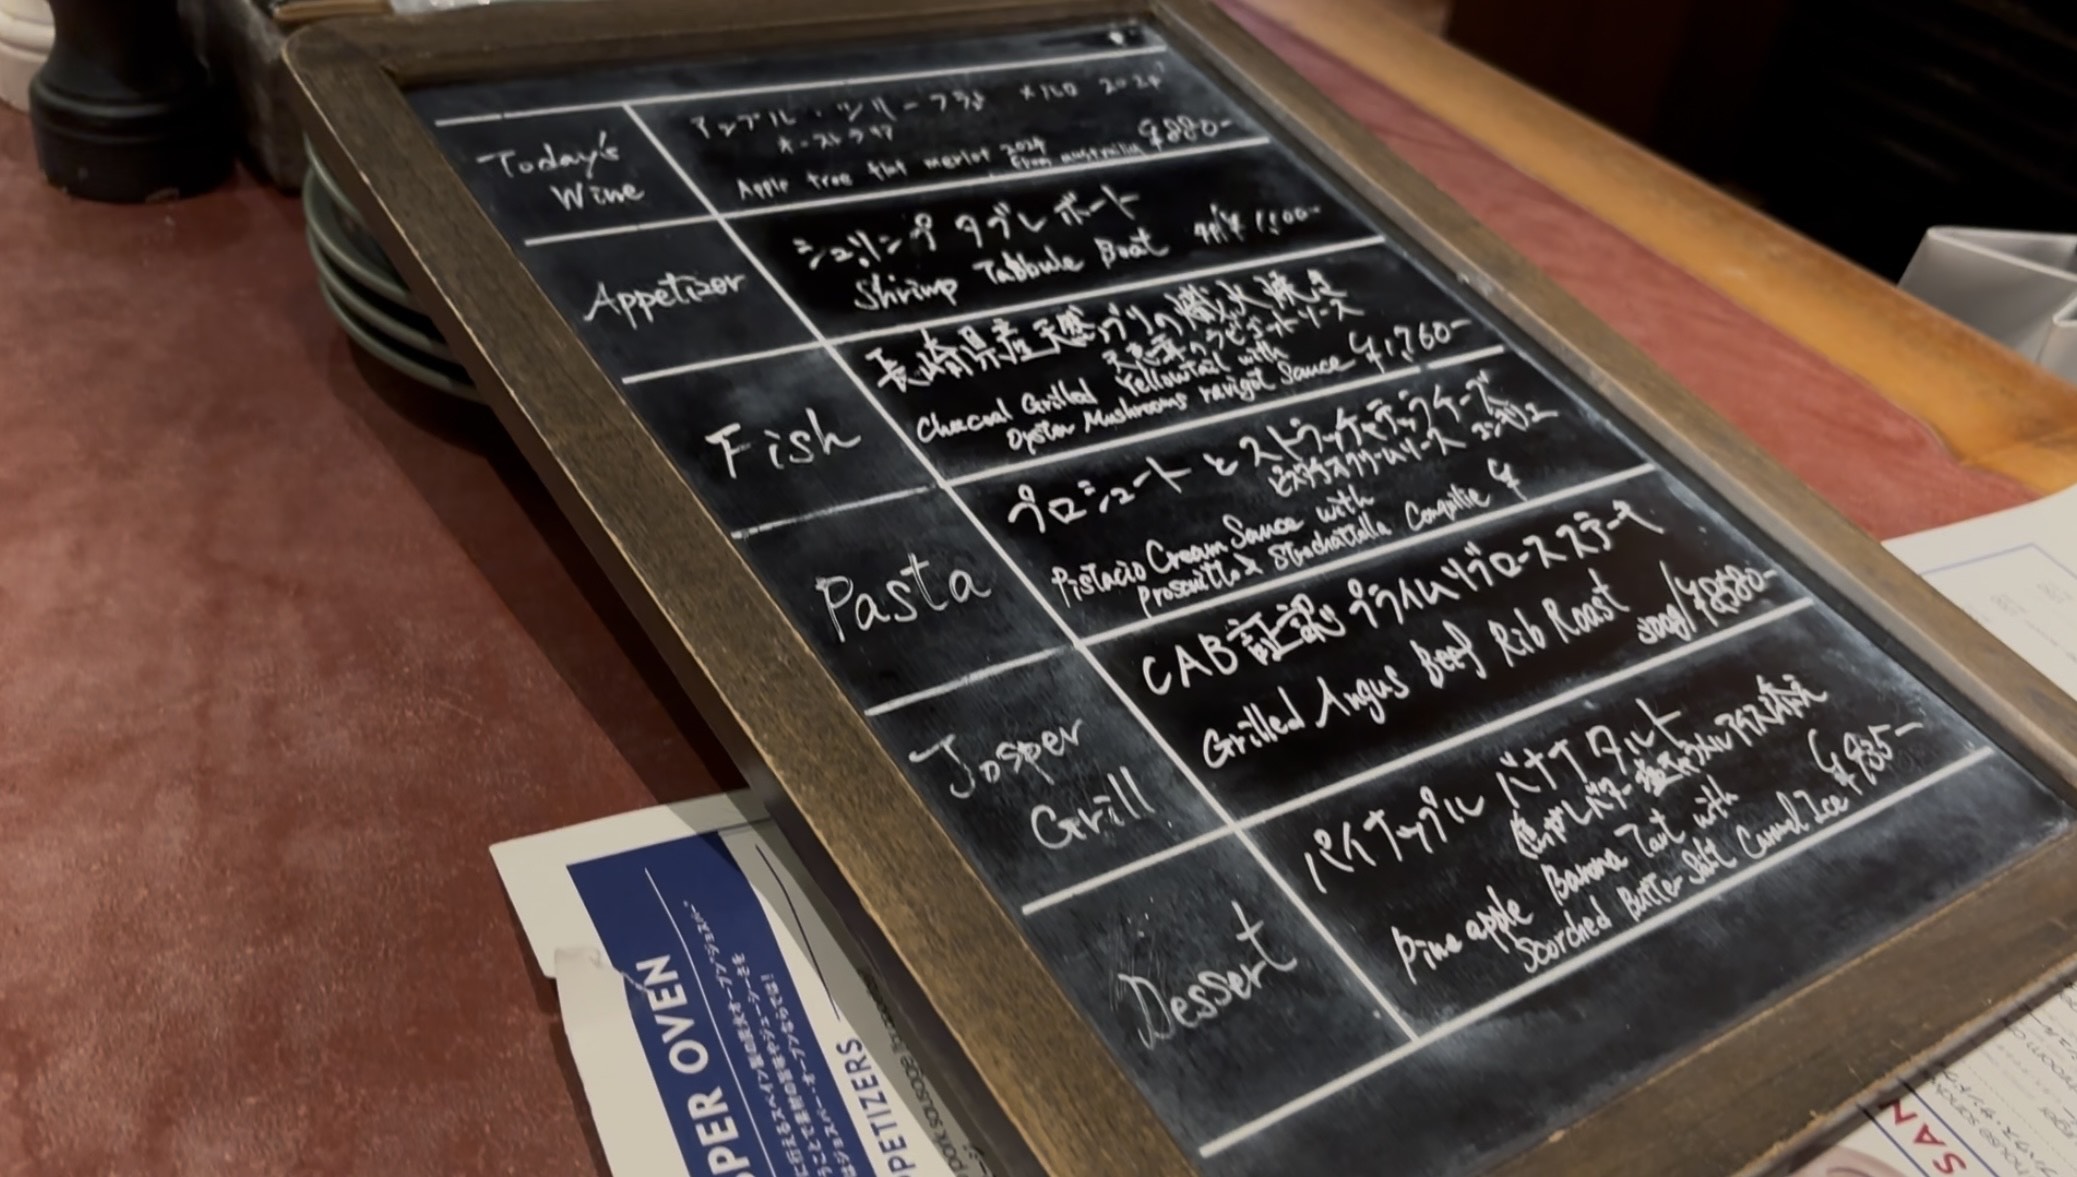 Today's
Wine
アップル・ツリーフラット メルロ 2024
オーストラリア
Apple tree flat merlot 2024
from australia ¥880-
Appetizer
シュリンプ タブレ ボート
Shrimp Tabbule Boat ¥1,100-
Fish
長崎県産天然ブリの炭火焼き
ラビゴットソース
Charcoal Grilled Yellowtail with
Oyster Mushrooms ravigot Sauce ¥1,760-
Pasta
プロシュートとストラッキャテッラチーズ
ピスタチオクリームソース コンキリエ
Pistacio Cream Sauce with
Proscuitto & Strachattella Conquilie ¥
Josper
Grill
CAB認証 プライムリブロースステーキ
Grilled Angus Beef Rib Roast 300g/¥8580-
Dessert
パイナップル バナナ タルト
焦がしバター塩キャラメルアイス添え
Pine apple Banana Tart with
Scorched Butter Salt Caramel Ice ¥935-
PER OVEN
PETIZERS
pork sausage
SAN